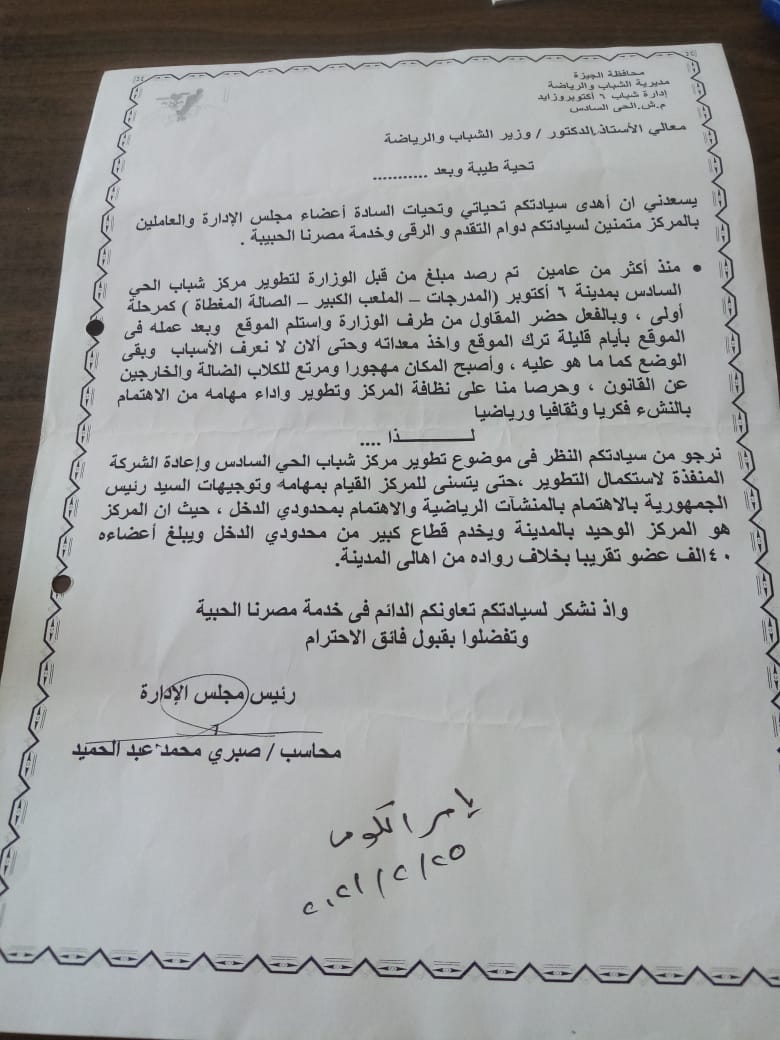 محافظة الجيزة
مديرية الشباب والرياضة
إدارة شباب ٦ أكتوبر وزايد
م.ش.الحى السادس
معالي الأستاذ الدكتور / وزير الشباب والرياضة
تحية طيبة وبعد ...........
يسعدني ان أهدى سيادتكم تحياتي وتحيات السادة أعضاء مجلس الإدارة والعاملين
بالمركز متمنين لسيادتكم دوام التقدم و الرقى وخدمة مصرنا الحبيبة .
• منذ أكثر من عامين تم رصد مبلغ من قبل الوزارة لتطوير مركز شباب الحي
السادس بمدينة ٦ أكتوبر (المدرجات – الملعب الكبير – الصالة المغطاة ) كمرحلة
أولى ، وبالفعل حضر المقاول من طرف الوزارة واستلم الموقع وبعد عمله فى
الموقع بأيام قليلة ترك الموقع واخذ معداته وحتى ألان لا نعرف الأسباب وبقى
الوضع كما ما هو عليه ، وأصبح المكان مهجورا ومرتع للكلاب الضالة والخارجين
عن القانون ، وحرصا منا على نظافة المركز وتطوير واداء مهامه من الاهتمام
بالنشء فكريا وثقافيا ورياضيا
لــــــــذا ....
نرجو من سيادتكم النظر فى موضوع تطوير مركز شباب الحي السادس وإعادة الشركة
المنفذة لاستكمال التطوير ،حتى يتسنى للمركز القيام بمهامه وتوجيهات السيد رئيس
الجمهورية بالاهتمام بالمنشآت الرياضية والاهتمام بمحدودي الدخل ، حيث ان المركز
هو المركز الوحيد بالمدينة ويخدم قطاع كبير من محدودي الدخل ويبلغ أعضاءه
٤٠ الف عضو تقريبا بخلاف رواده من اهالى المدينة.
واذ نشكر لسيادتكم تعاونكم الدائم فى خدمة مصرنا الحبية
وتفضلوا بقبول فائق الاحترام
رئيس مجلس الإدارة
محاسب / صبري محمد عبد الحميد
٢٠٢١/٢/٢٥